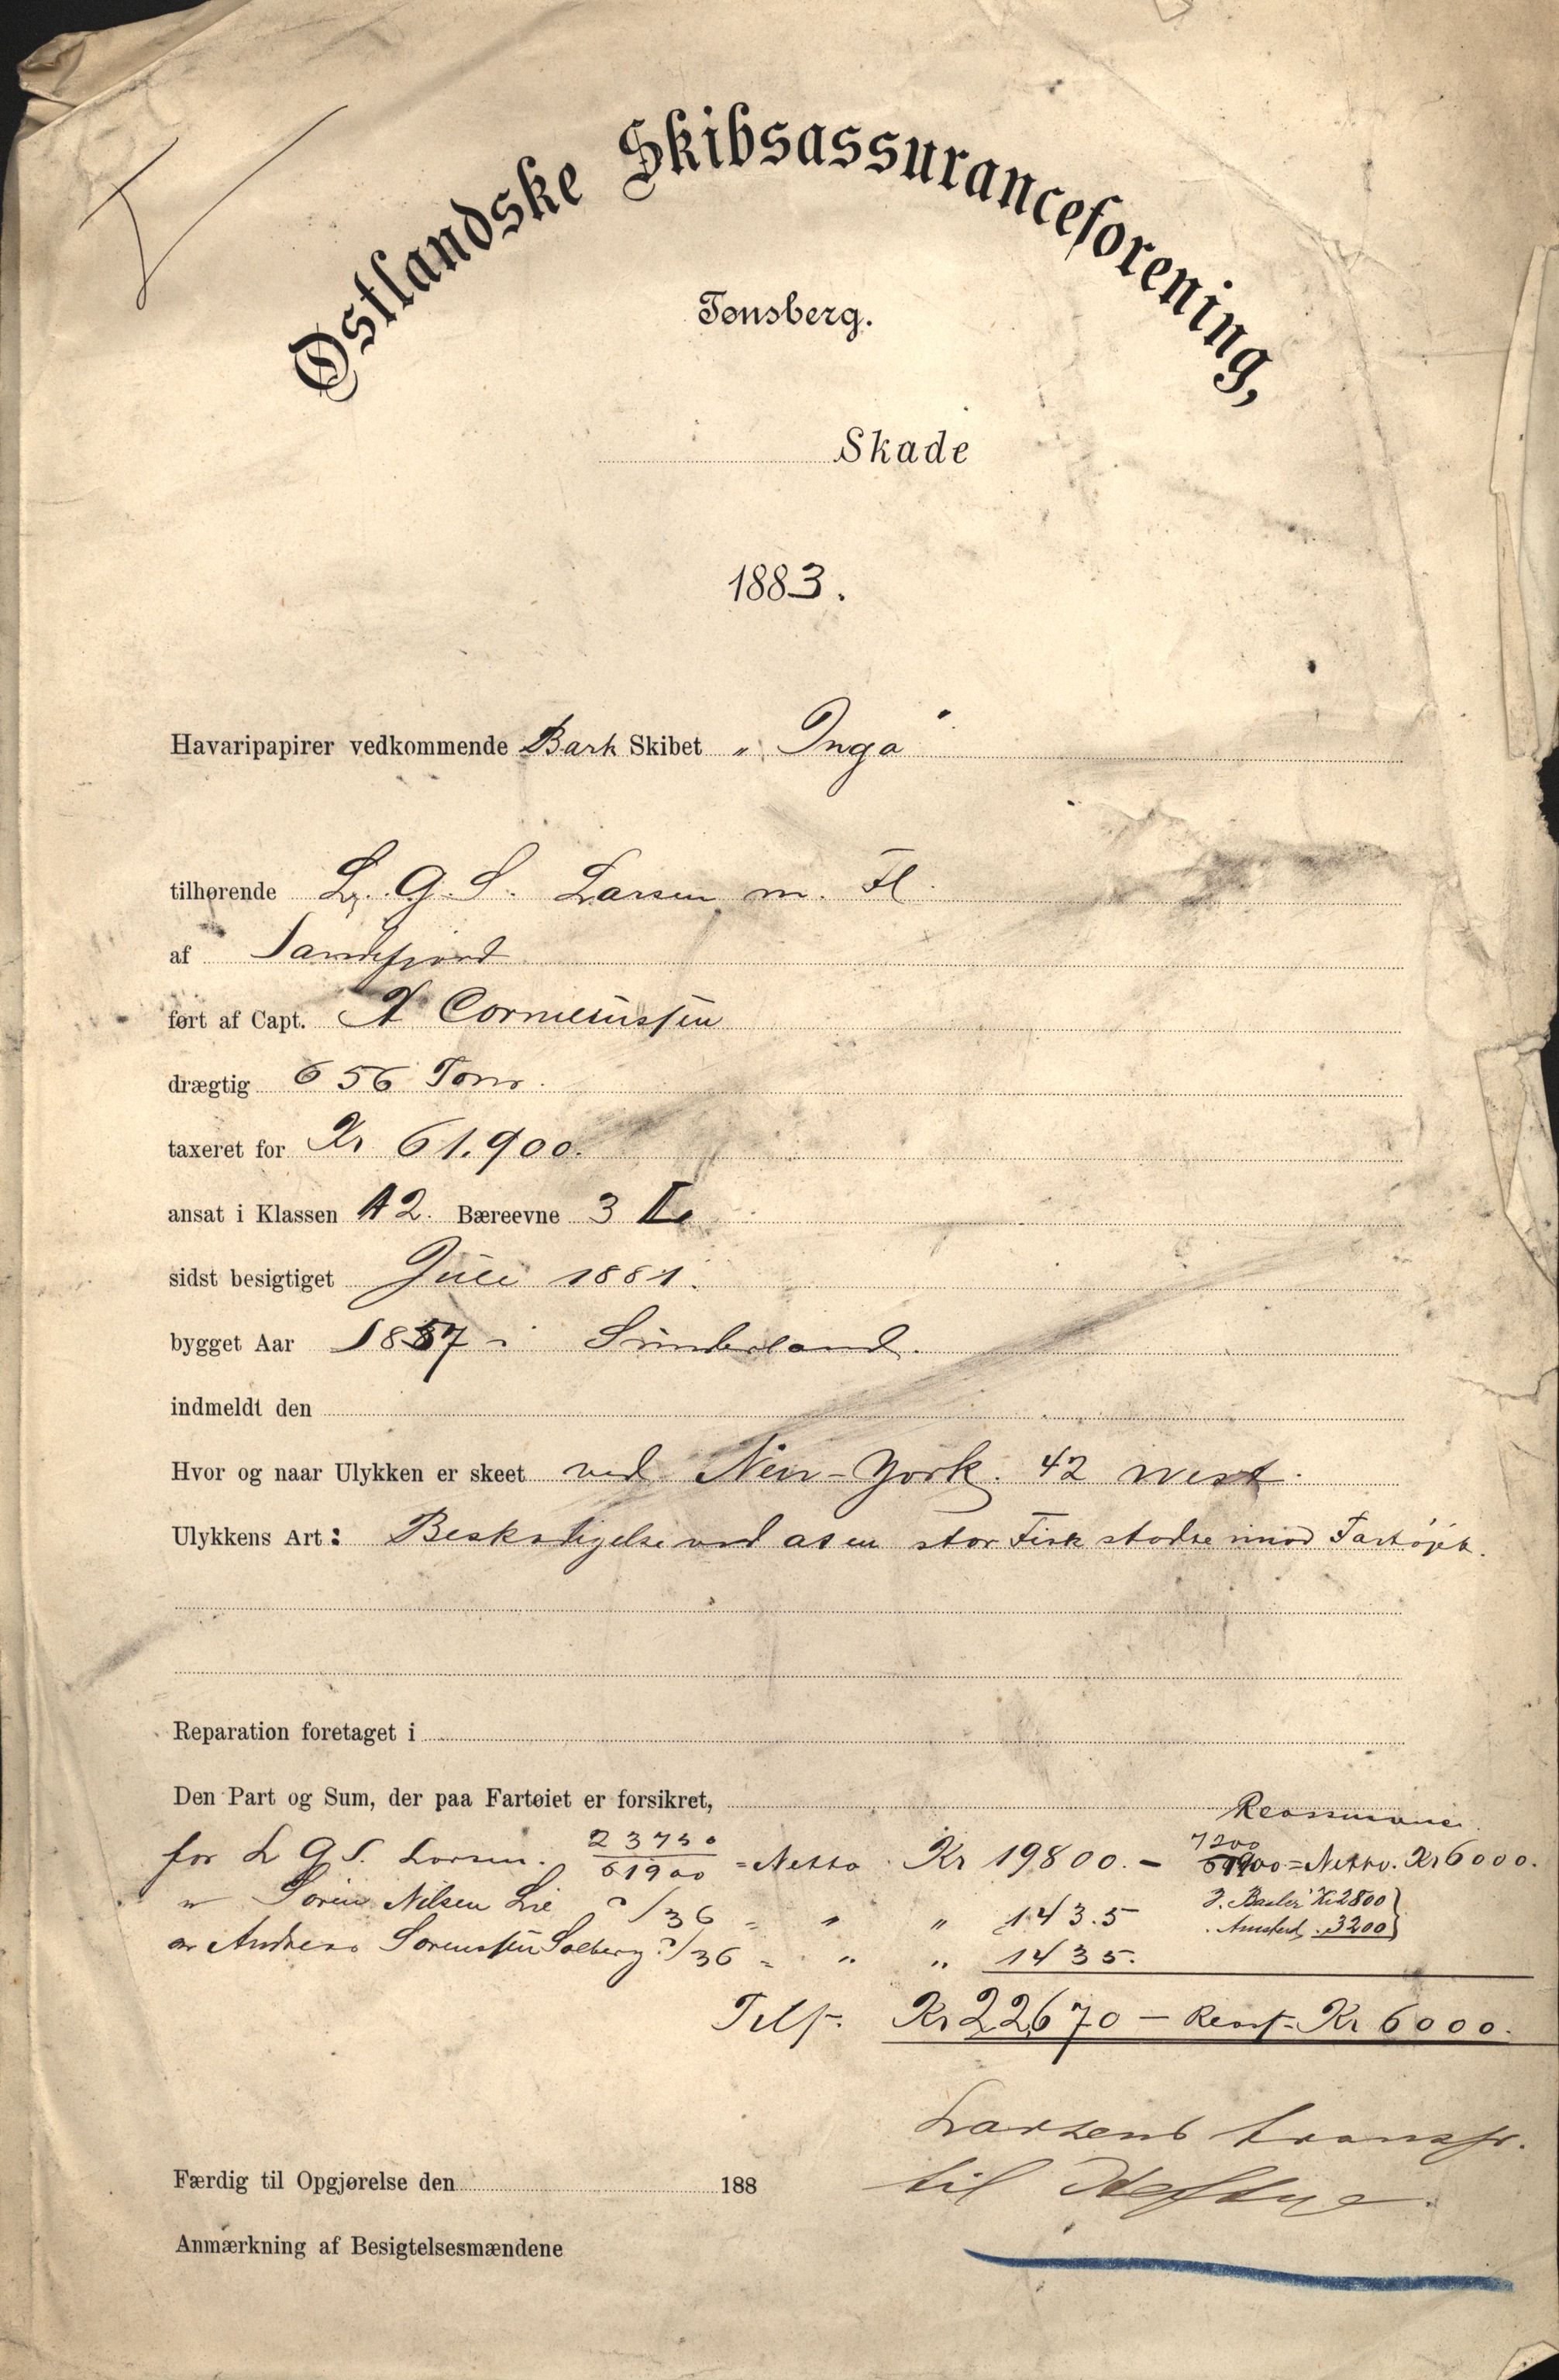 Østlandske Skibsassuranceforening,
Tønsberg.
Skade
1883.
Havaripapirer vedkommende Bark Skibet „Inga"
tilhørende L. G. S. Larsen m. Fl.
af Sandefjord
ført af Capt. A Corneliussen
drægtig 656 Tons.
taxeret for Kr 61.900.
ansat i Klassen A 2. Bæreevne 3
sidst besigtiget Juli 1881.
bygget Aar 1857 i Sunderland.
indmeldt den
Hvor og naar Ulykken er skeet ved New-York. 42 west.
Ulykkens Art: Beskadigelse ved at en stor Fisk stødte imod Fartøjet.
Reparation foretaget i
Den Part og Sum, der paa Fartøiet er forsikret,
Reassurance.
for L G S. Larsen. 23750/61900 = Netto Kr 19800. — 7200/61900 = Netto. Kr 6000.
" Søren Nilsen Lie /36 = " " 1435 J. Basler Kr 2800
" Andreas Sørenssen Solberg /36 = " " 1435. Amsterd. 3200
Tils. Kr 22670 — Reass. Kr 6000.
Larsens transp.
til Heftye.
Færdig til Opgjørelse den 188
Anmærkning af Besigtelsesmændene